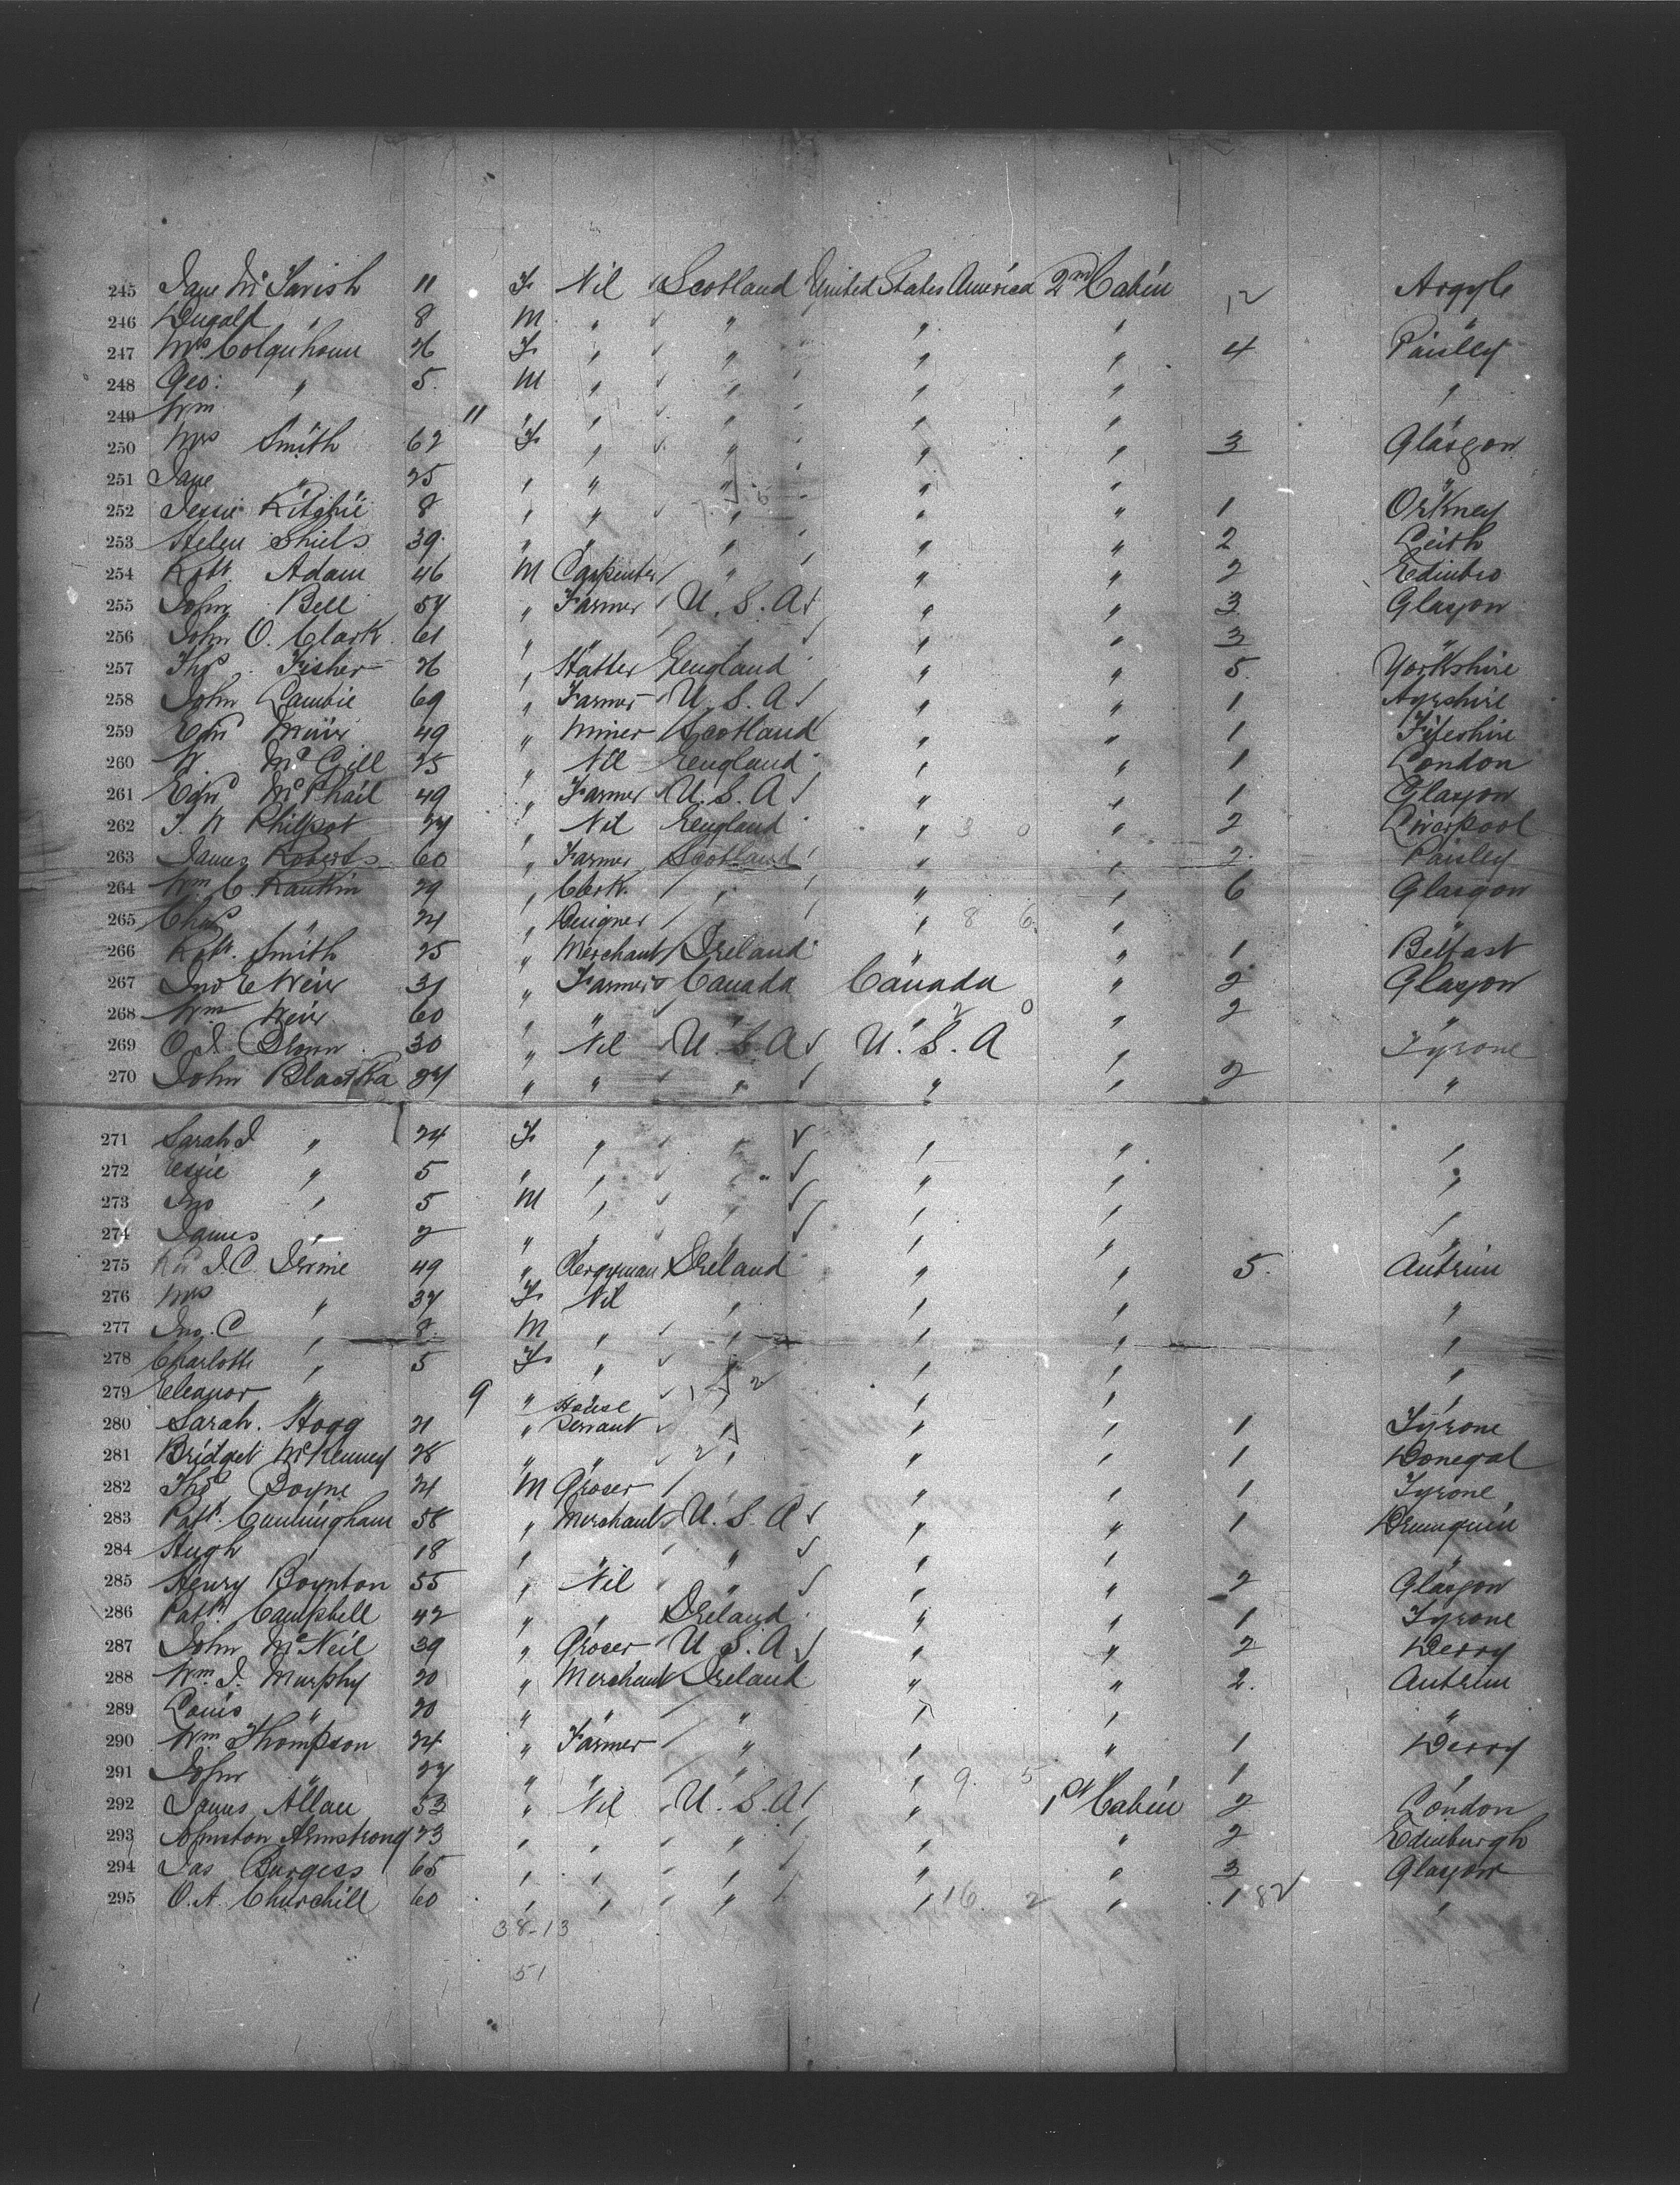 245 Jane McTavish 11 F Nil Scotland United States America 2nd Cabin Argyle
246 Dugald " 8 M " " " " "
247 Mrs Colquhoun 26 F " " " " 4 Paisley
248 Geo: " 5 M " " " " "
249 Wm 11 " " " " "
250 Mrs Smith 62 F " " " " 3 Glasgow
251 Jane " 25 " " " " " "
252 Jessie Ritchie 8 " " " " " 1 Orkney
253 Helen Shiels 39 " " " " " 2 Leith
254 Robt. Adam 46 M Carpenter " " " 2 Edinbro
255 John Bell 54 " Farmer U.S.A " " 3 Glasgow
256 John O. Clark 61 " " " " " 3 "
257 Thos Fisher 26 " Hatter England " " 5 Yorkshire
258 John Lambie 69 " Farmer U.S.A " " 1 Ayrshire
259 Edw Muir 49 " Miner Scotland " " 1 Fifeshire
260 W McGill 25 " Nil England " " 1 London
261 Edw McPhail 49 " Farmer U.S.A " " 1 Glasgow
262 J. W Philpot 24 " Nil England " 3 0 " 2 Liverpool
263 James Roberts 60 " Farmer Scotland " " 2 Paisley
264 Wm C. Rankin 29 " Clerk " " " 6 Glasgow
265 Chas " 21 " Designer " " 8 6 " "
266 Robt. Smith 25 " Merchant Ireland " " 1 Belfast
267 Jno E Weir 31 " Farmer Canada Canada " 2 Glasgow
268 Wm Weir 60 " " " " 2 0 " 2 "
269 30 " Nil U.S.A U.S.A " Tyrone
270 John 27 " " " " " 2 "
271 Sarah J " 24 F " " " " "
272 Essie " 5 " " " " " "
273 Jno " 5 M " " " " "
274 James " 2 " " " " " "
275 Rev J C. Irvine 49 " Clergyman Ireland " " 5 Antrim
276 Mrs " 37 F Nil " " " "
277 Jno. C " 8 M " " " " "
278 Charlotte " 5 F " " " " "
279 Eleanor " 9 " " " " "
280 Sarah. Hogg 21 " House Servant " " " 1 Tyrone
281 Bridget McKenney 28 " " " " " 1 Donegal
282 Thos Boyne 21 M Grocer " " " 1 Tyrone
283 Patk. Cunningham 58 " Merchant U.S.A " " 1 Drumquin
284 Hugh " 18 " " " " " "
285 Henry Boynton 55 " Nil " " " 2 Glasgow
286 Patk. Campbell 42 " " Ireland " " 1 Tyrone
287 John McNeil 39 " Grocer U.S.A " " 2 Derry
288 Wm. J. Murphy 20 " Merchant Ireland " " 2 Antrim
289 Louis " 20 " " " " " "
290 Wm Thompson 24 " Farmer " " " 1 Derry
291 John " 27 " " " " 9 5 " 1 "
292 James Allan 53 " Nil U.S.A " 1st Cabin 2 London
293 Johnston Armstrong 23 " " " " " 2 Edinburgh
294 Jas Burgess 65 " " " " " 3 Glasgow
295 O. A. Churchill 60 " " " " 16 2 " 1 82 "
38-13
51